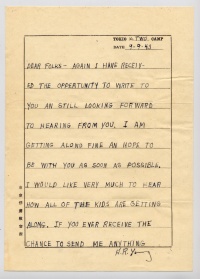 TOKIO P.T.W.D. CAMP
DATE 9-9-43
DEAR FOLKS- AGAIN I HAVE RECEIV-
ED THE OPPORTUNITY TO WRITE TO
YOU AN STILL LOOKING FORWARD
TO HEARING FROM YOU. I AM
GETTING ALONG FINE AN HOPE TO
BE WITH YOU AS SOON AS POSSIBLE.
I WOULD LIKE VERY MUCH TO HEAR
HOW ALL OF THE KIDS ARE GETTING
ALONG. IF YOU EVER RECEIVE THE
CHANCE TO SEND ME ANYTHING